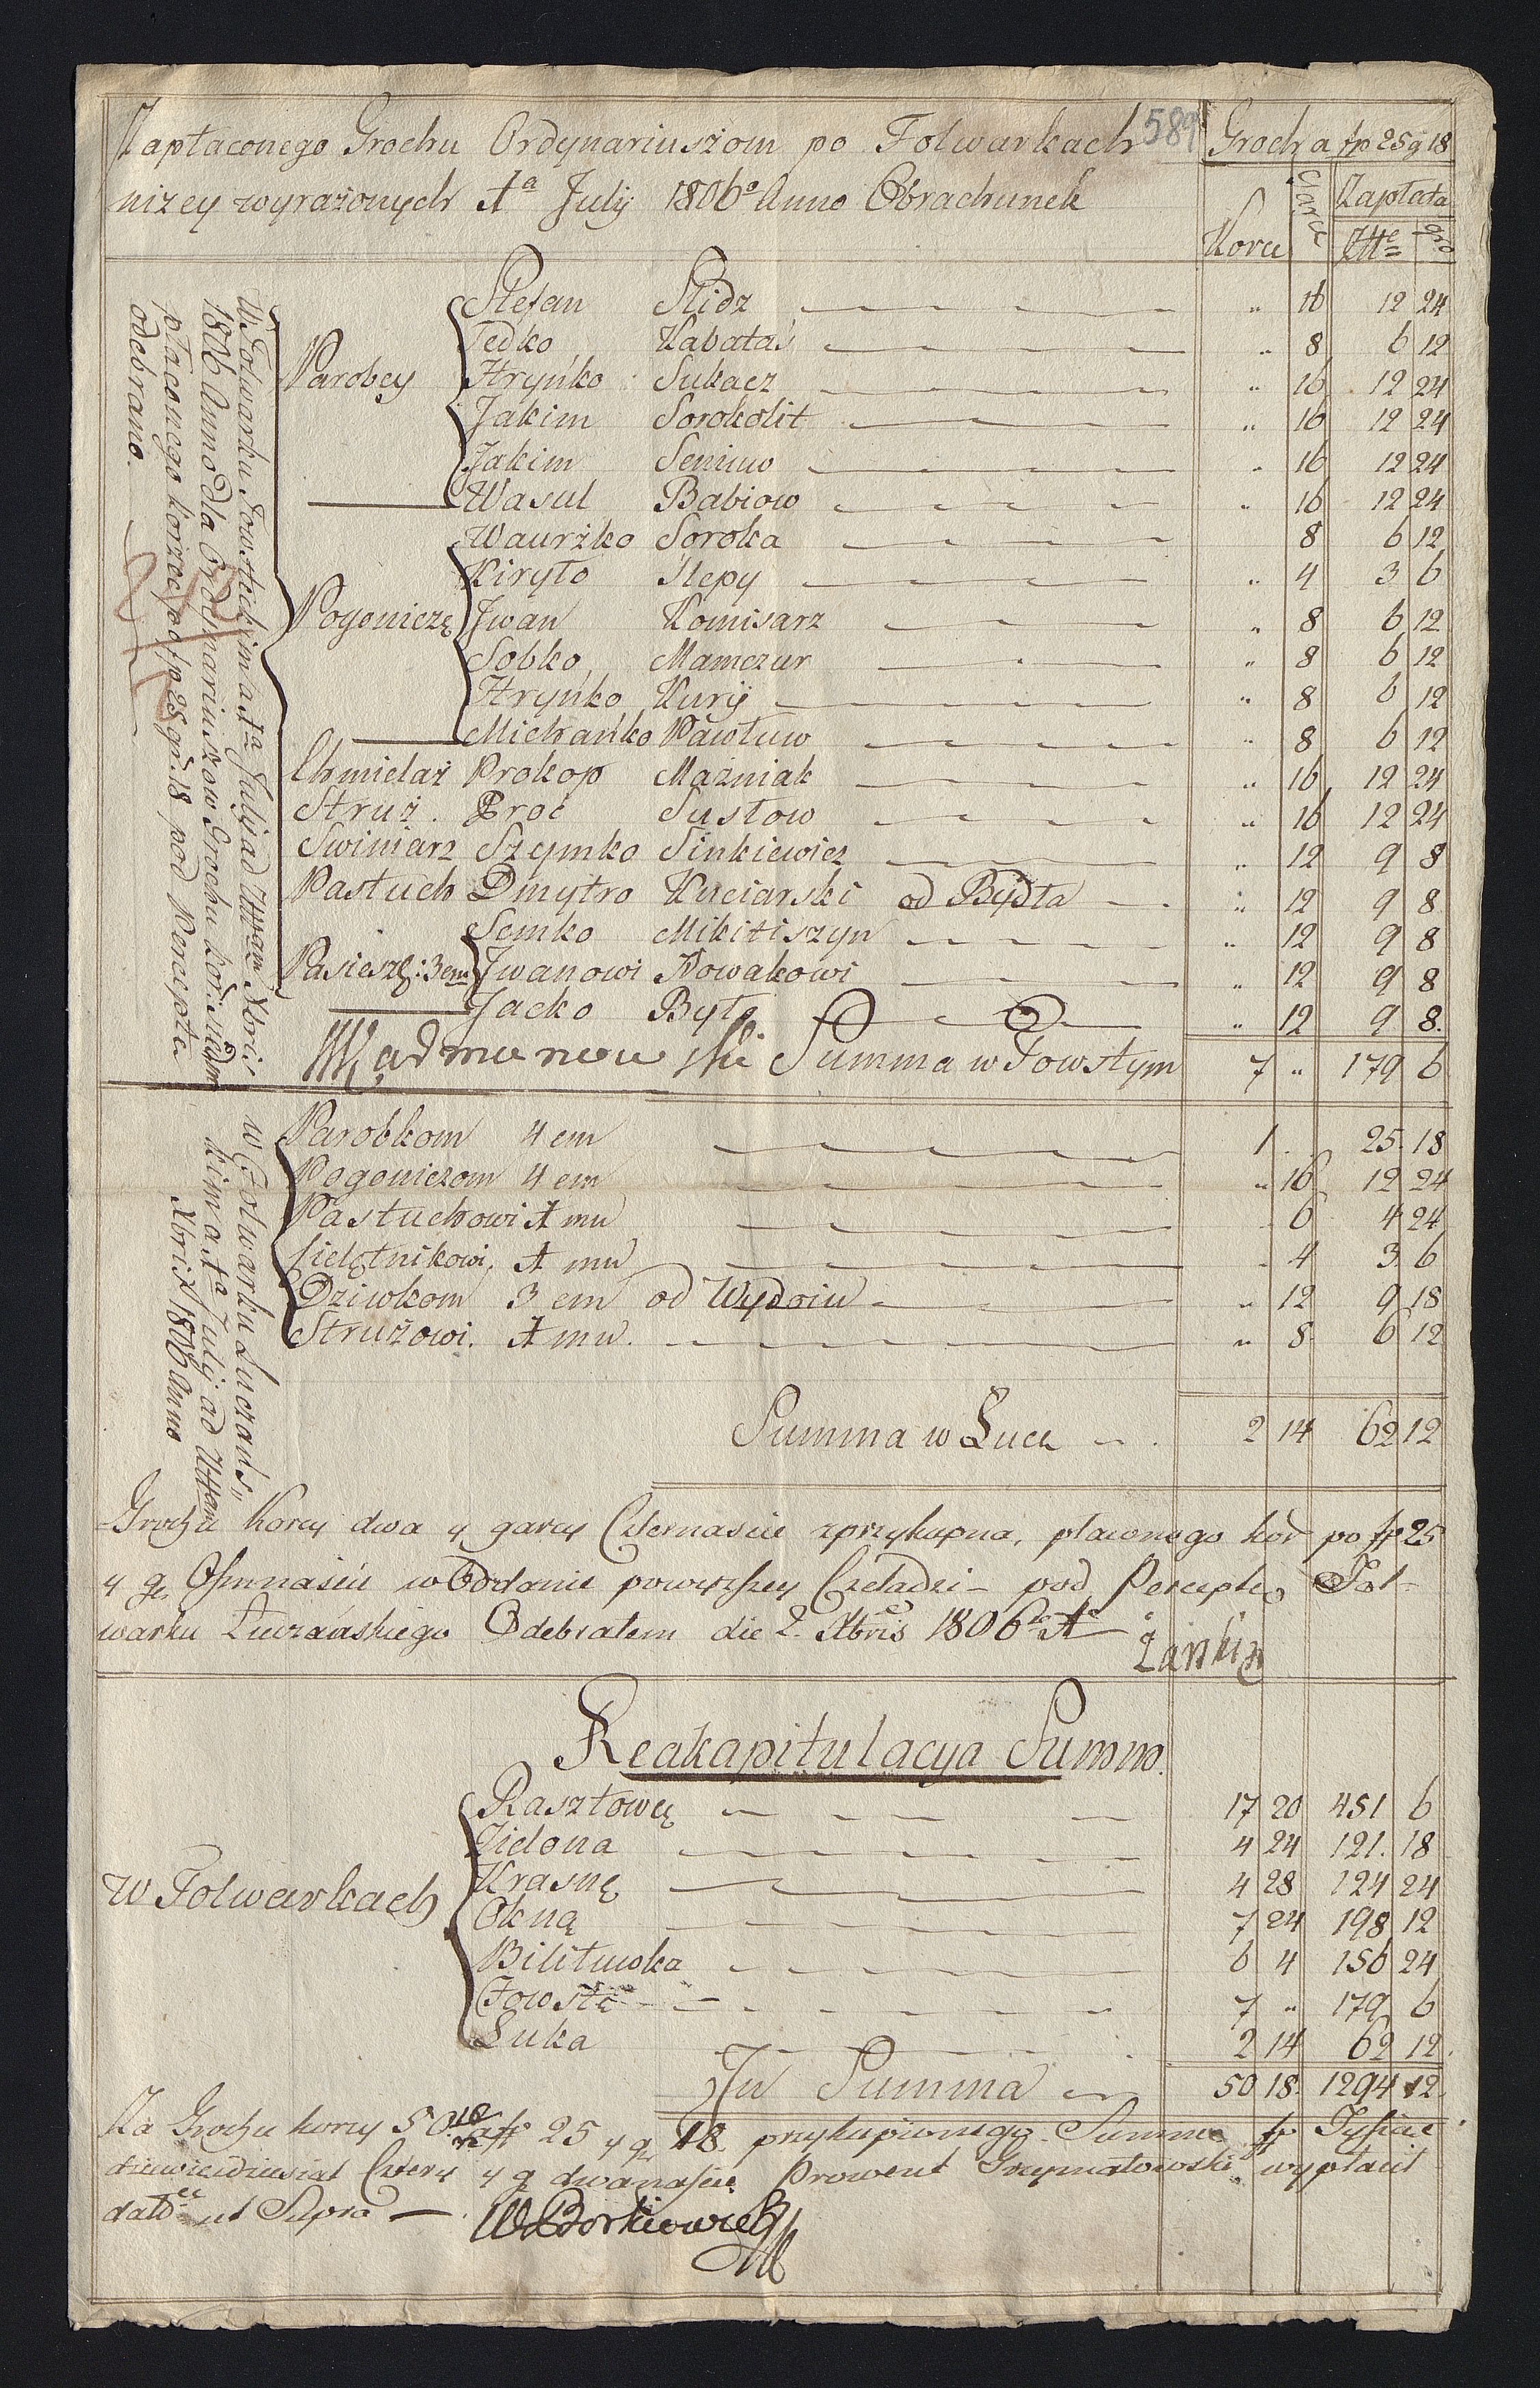 Zapłaconego Grochu Ordynariuszom po Folwarkach 589 Groch a fp 25 g 18
niżey wyrażonych 1a Julij 1806o Anno Obrachunek
Korce Garce Zapłata
Złłe gro
W Folwarku Towsteckim a 1a Julij ad Ultam Xbris
1806 Anno dla Ordynariuszow Grochu kor: siedm
płaconego korzec po fp 25 gr. 18 pod Percepta
odebrano.
Parobcy
Stefan Slidz " 16 12 24
Fedko Kabataś " 8 6 12
Hryńko Sukacz " 16 12 24
Jakim Sorokolit " 16 12 24
Jakim Seniuw " 16 12 24
Wasul Babiow " 16 12 24
Pogonicze
Waurżko Soroka 8 6 12
Kiryło Slepy " 4 3 6
Jwan Komisarz " 8 6 12
Sobko Mamczur " 8 6 12
Hryńko Kurÿ " 8 6 12
Michańko Pawłuw " 8 6 12
Chmielaż Prokop Maźniak " 16 12 24
Struż. Proć Susłow " 16 12 24
Swiniarz Szymko Sinkiewicz " 12 9 8
Pastuch Dmytro Kuciarski od Bydła " 12 9 8
Semko Mikitiszyn " 12 9 8
Pasiesz: 3em Jwanowi Nowakowi " 12 9 8
Jacko Byto " 12 9 8.
Summa w Towstym 7 " 179 6
w Folwarku Luczads"
kim a 1a Julij ad Ultam
Xbris 1806 Anno
Parobkom 4 em 1 . 25. 18
Pogoniczom 4 em " 16 12 24
Pastuchowi 1 mu 6 4 24
Cielętnikowi, 1 mu 4 3 6
Dziwkom 3 em od Wydoiu " 12 9 18
Strużowi. 1 mu. " 8 6 12
Summa w Luce 2 14 62 12
Grochu Korcy dwa y garcy Czternascie zprzykupna, płaconego kor po fp 25
y gr Ośmnaście w Oddanie powyższey Czeladzi - pod Perceptę Fol-
warku Łuczańskiego Odebrałem die 2. Xbris 1806
Reakapitulacya Summ.
W Folwarkach
Rasztowcę 17 20 451 6
Zielona 4 24 121. 18
Krasnę 4 28 124 24
Okną 7 24 198 12
Bilituwka 6 4 156 24
Towstę 7 " 179 6
Luka 2 14 62 12.
Jn Summa 50 18. 1294 12.
Za Grochu korcy 50 18/32 a fp 25 y gr 18. przykupionego Summę fp Tysiąc
dziewiedziesiąt Cztery y g dwanaście Prowent Grzymałowski wypłacił
datto ut Supra —. WBorkiowicz